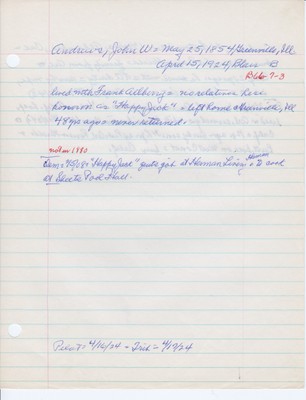 Andrews, John W = May 25, 1854, Greenville, Ill
April 15, 1924, Blair B
B66-7-3
lived with Frank Ahlberg = no relation here
known as "Happy Jack" = left home Greenville, Ill
48 yrs ago = never returned.
not in 1880
"Happy Jack" quits job at Harman Livery + to work
at Skeets Pool Hall.
Pilot = 4/16/24 = Trib = 4/17/24